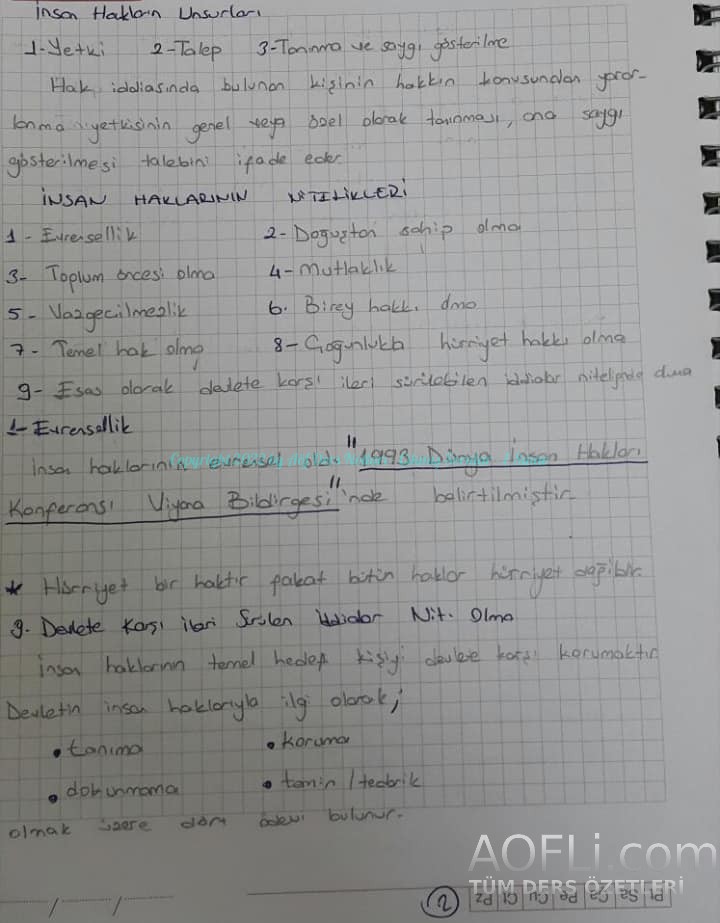 İnsan Hakların Unsurları
1-Yetki 2-Talep 3-Tanınma ve saygı gösterilme
Hak iddiasında bulunan kişinin hakkın konusundan yarar-
lanma yetkisinin genel veya özel olarak tanınması, ona saygı
gösterilmesi talebini ifade eder
İNSAN HAKLARININ NİTELİKLERİ
1 - Evrensellik 2- Doğuştan sahip olma
3- Toplum öncesi olma 4-Mutlaklık
5- Vazgeçilmezlik 6. Birey hakkı olma
7- Temel hak olma 8- Çoğunlukla hürriyet hakkı olma
9- Esas olarak devlete karşı ileri sürülebilen iddialar niteliğinde olma
1- Evrensellik
İnsan haklarının evrensel old. "1993 Dünya İnsan Hakları
Konferansı Viyana Bildirgesi"nde belirtilmiştir
* Hürriyet bir haktır fakat bütün haklar hürriyet değildir.
9. Devlete Karşı İleri Sürülen İddialar Nit. Olma
İnsan haklarının temel hedef kişiyi devlete karşı korumaktır
Devletin insan haklarıyla ilgi olarak;
• tanıma • koruma
• dokunmama • temin / tedarik
olmak üzere dört ödevi bulunur.
AOFLi.com
TÜM DERS ÖZETLERİ
2 Pz Ct Pe Ça Sa Pt